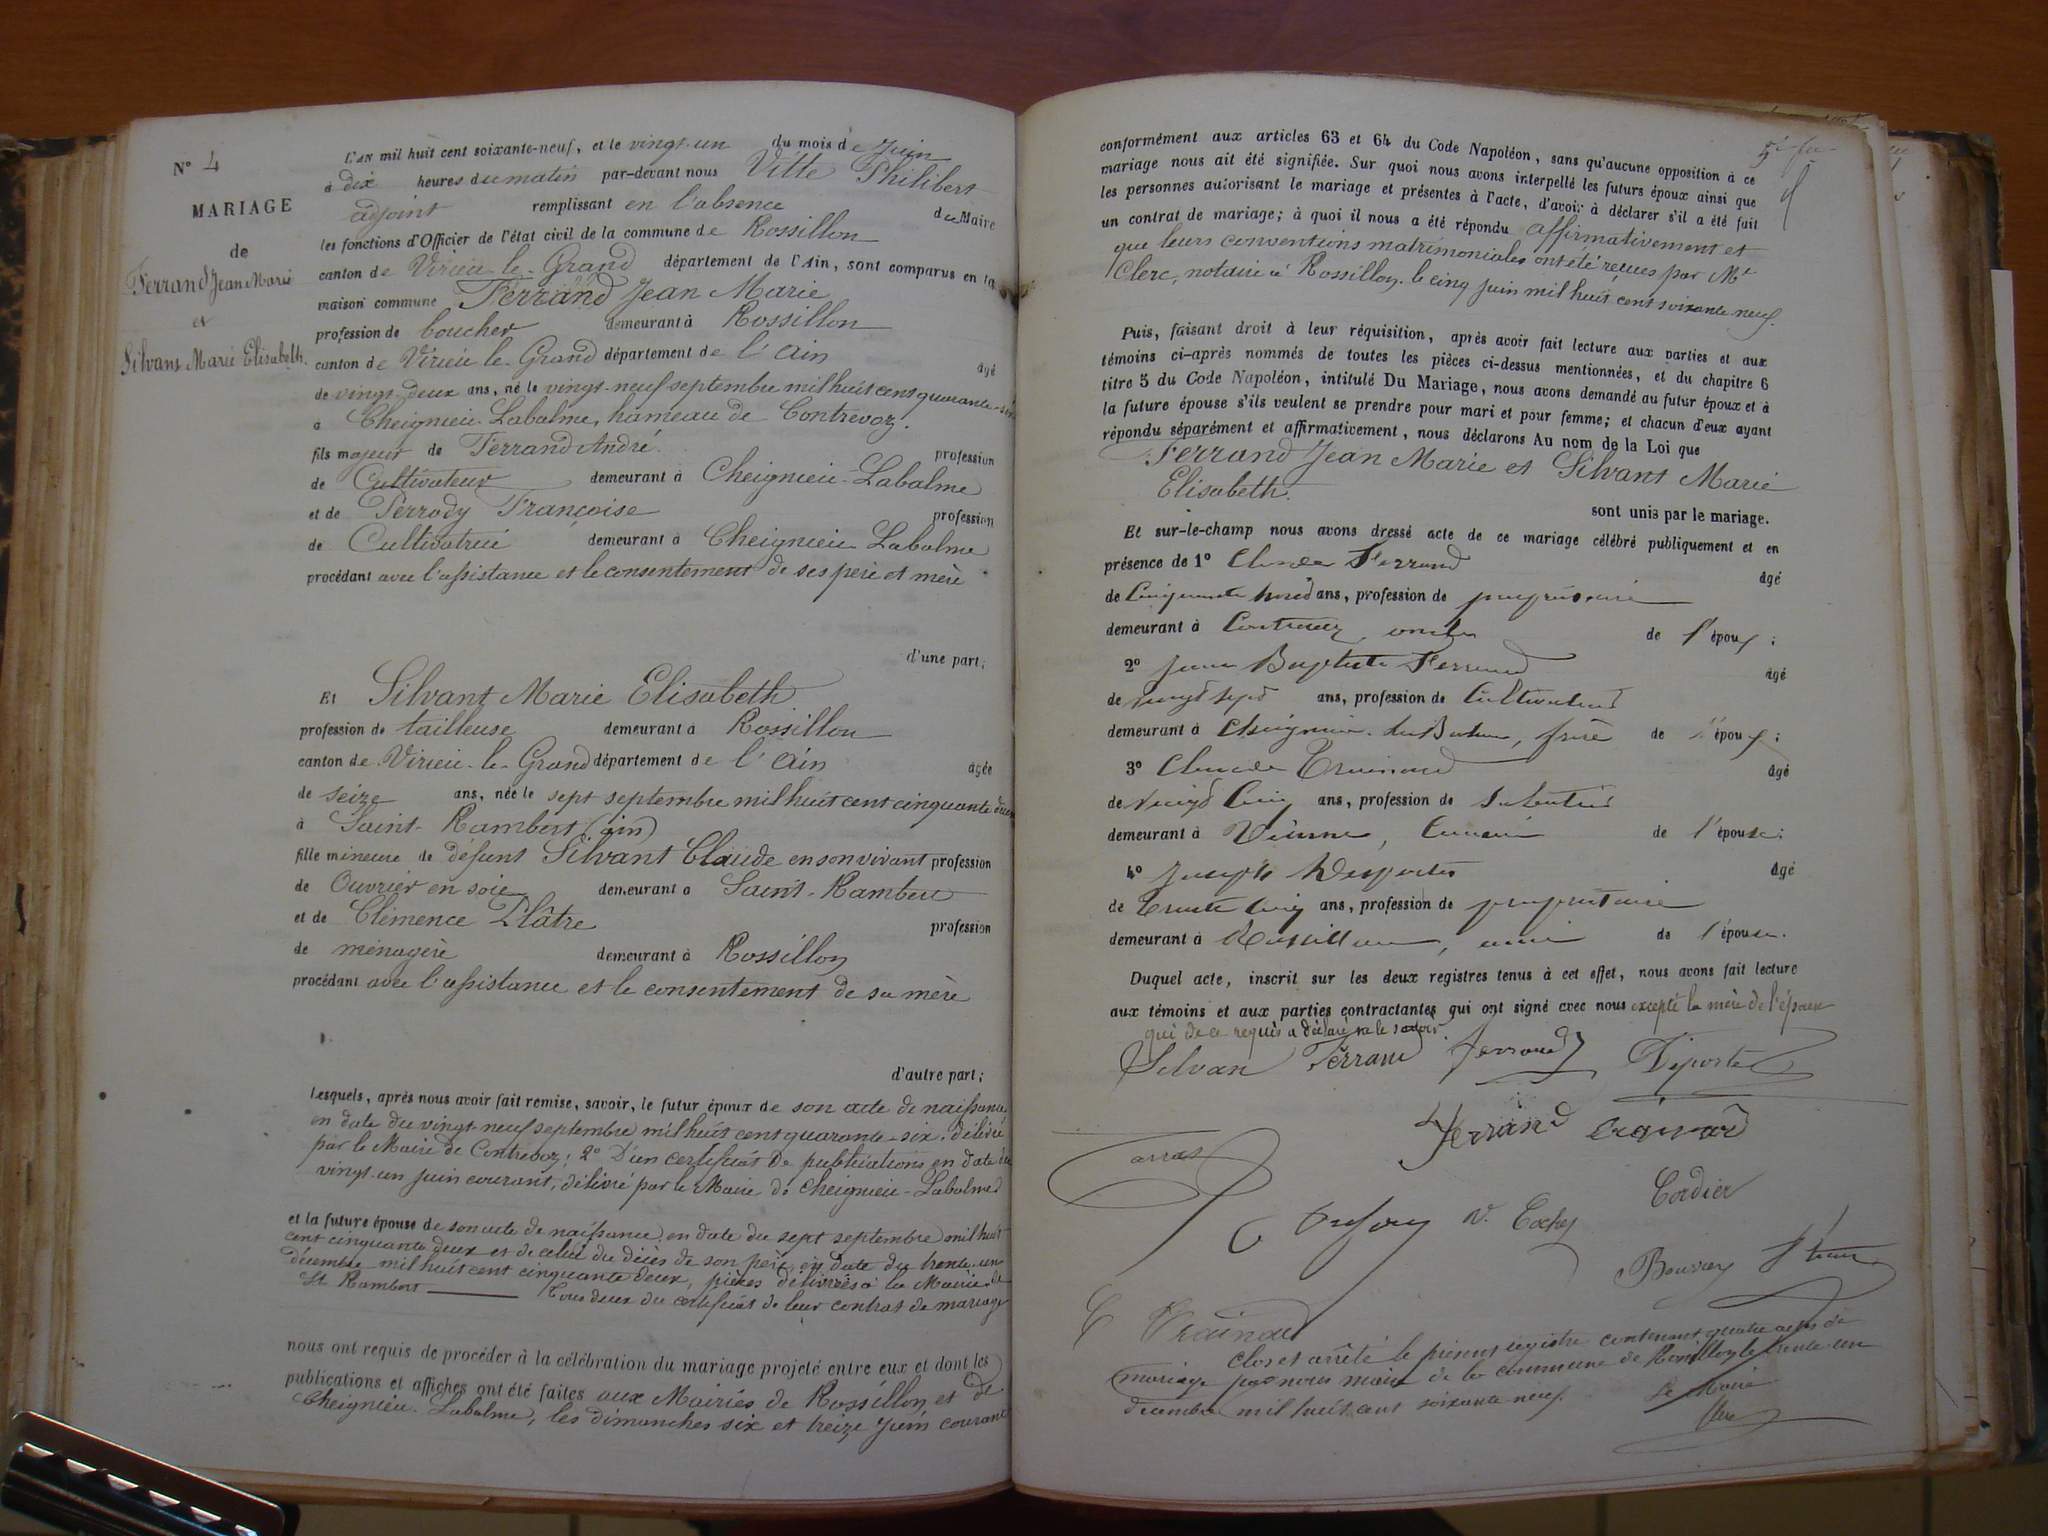 N° 4
MARIAGE
de
Ferrand Jean Marie
et
Silvant Marie Elisabeth.
L'an mil huit cent soixante-neuf, et le vingt-un du mois de Juin
à dix heures du matin par-devant nous Vitte Philibert
adjoint remplissant en l'absence du Maire
les fonctions d'Officier de l'état civil de la commune de Rossillon
canton de Virieu-le-Grand département de l'Ain, sont comparus en la
maison commune Ferrand Jean Marie
profession de boucher demeurant à Rossillon
canton de Virieu le-Grand département de l'Ain âgé
de vingt-deux ans, né le vingt-neuf septembre mil huit cent quarante-six
à Cheignieu-Labalme, hameau de Contrevoz.
fils majeur de Ferrand André. profession
de Cultivateur demeurant à Cheignieu-Labalme
et de Perrody Françoise profession
de Cultivatrice demeurant à Cheignieu Labalme
procédant avec l'assistance et le consentement de ses père et mère
d'une part;
Et Silvant Marie Elisabeth
profession de tailleuse demeurant à Rossillon
canton de Virieu-le-Grand département de l'Ain âgée
de seize ans, née le sept septembre mil huit cent cinquante deux
à Saint-Rambert (ain)
fille mineure de défunt Silvant Claude en son vivant profession
de Ouvrier en soie demeurant à Saint-Rambert
et de Clémence Plâtre profession
de ménagère demeurant à Rossillon
procédant avec l'assistance et le consentement de sa mère
d'autre part;
Lesquels, après nous avoir fait remise, savoir, le futur époux de son acte de naissance
en date du vingt neuf septembre mil huit cent quarante-six, délivré
par le Maire de Contrevoz; 2° D'un certificat de publications en date du
vingt-un juin courant, délivré par le Maire de Cheignieu-Labalme
et la future épouse de son acte de naissance en date du sept septembre mil huit
cent cinquante deux et de celui du décès de son père, en date du trente-un
décembre mil huit cent cinquante deux, pièces délivrées à la Mairie de
St Rambert Tous deux du certificat de leur contrat de mariage
nous ont requis de procéder à la célébration du mariage projeté entre eux et dont les
publications et affiches ont été faites aux Mairies de Rossillon et de
Cheignieu-Labalme, les dimanches six et treize Juin courant
conformément aux articles 63 et 64 du Code Napoléon, sans qu'aucune opposition à ce
mariage nous ait été signifiée. Sur quoi nous avons interpellé les futurs époux ainsi que
les personnes autorisant le mariage et présentes à l'acte, d'avoir à déclarer s'il a été fait
un contrat de mariage; à quoi il nous a été répondu affirmativement et
que leurs conventions matrimoniales ont été reçues par Mt
Clerc, notaire à Rossillon. le cinq juin mil huit cent soixante neuf.
Puis, faisant droit à leur réquisition, après avoir fait lecture aux parties et aux
témoins ci-après nommés de toutes les pièces ci-dessus mentionnées, et du chapitre 6
titre 5 du Code Napoléon, intitulé Du Mariage, nous avons demandé au futur époux et à
la future épouse s'ils veulent se prendre pour mari et pour femme; et chacun d'eux ayant
répondu séparément et affirmativement, nous déclarons Au nom de la Loi que
Ferrand Jean Marie et Silvant Marie
Elisabeth.
sont unis par le mariage.
Et sur-le-champ nous avons dressé acte de ce mariage célébré publiquement et en
présence de 1° Claude Ferrand âgé
de Cinquante ans, profession de propriétaire
demeurant à Contrevoz, oncle de l'époux;
2° Jean Baptiste Ferrand âgé
de vingt sept ans, profession de Cultivateur
demeurant à Cheignieu-La Balme, frère de l'époux;
3° Claude Trainard âgé
de vingt cinq ans, profession de
demeurant à Vienne, de l'épouse;
4° Joseph Desportes âgé
de trente cinq ans, profession de propriétaire
demeurant à Rossillon, ami de l'épouse.
Duquel acte, inscrit sur les deux registres tenus à cet effet, nous avons fait lecture
aux témoins et aux parties contractantes qui ont signé avec nous excepté la mère de l'époux
qui de ce requis a déclaré ne le savoir.
Silvan Ferrand Ferrand Déporte
Ferrand
Cordier
V. Cochey
Bouvay
Trainard
Clos et arrêté le présent registre contenant quatre actes de
mariage par nous maire de la commune de Rossillon le trente-un
décembre mil huit cent soixante neuf. Le Maire
Clerc